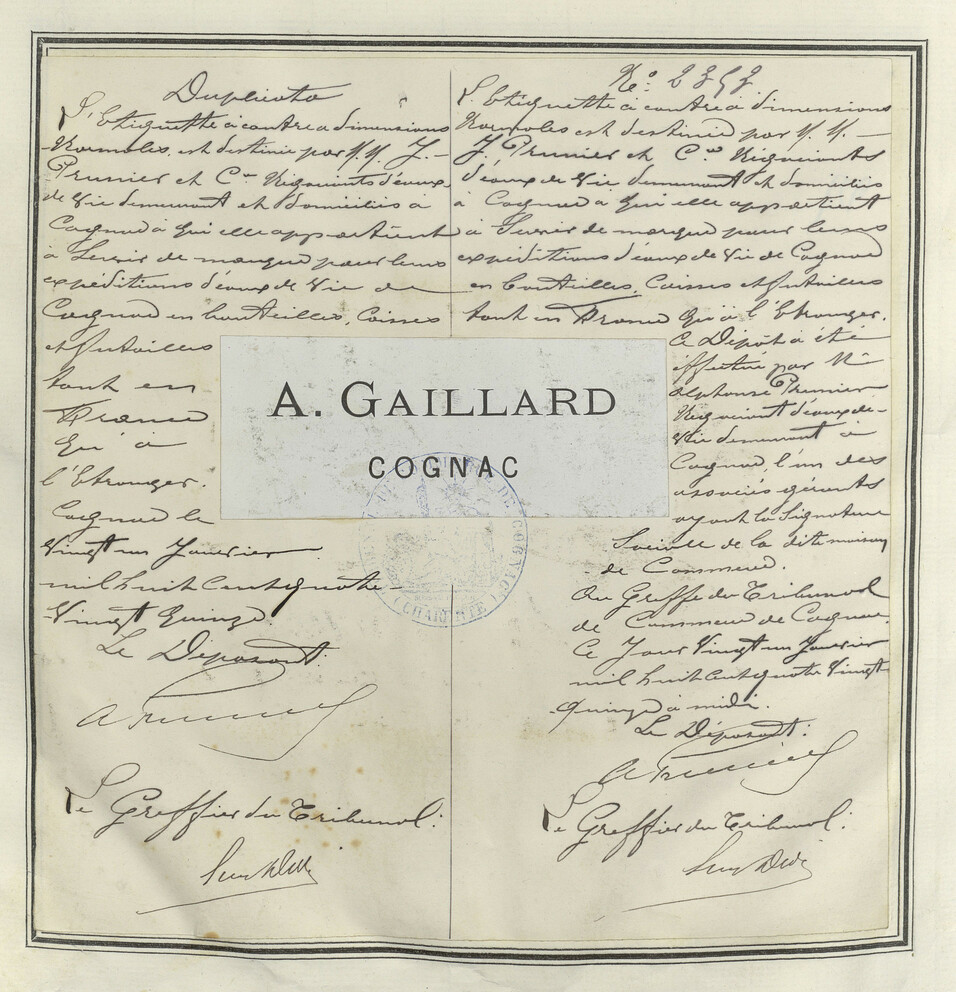 Duplicata
L'Etiquette ci contre a dimensions
Normales, est destinée par M.M. J.
Prunier et Cie Négociants d'eaux-
de Vie demeurant et domiciliés à
Cognac à qui elle appartient
à Servir de marque pour leurs
expéditions d'eaux de Vie de
Cognac en bouteilles, Caisses
et futailles
tant en
France
qu'à
l'Etranger.
Cognac le
Vingt un Janvier
mil huit cent quatre-
Vingt Quinze.
Le Déposant:
A Prunier
Le Greffier du Tribunal:
No: 2353
L'Etiquette ci contre à dimensions
Normales est destinée par M. M.
J. Prunier et Cie Négociants
d'eaux de Vie demeurant et domiciliés
à Cognac à qui elle appartient
à Servir de marque pour leurs
expéditions d'eaux de Vie de Cognac
en bouteilles, Caisses et futailles
tant en France qu'à l'Etranger.
Ce Dépôt a été
effectué par Mr
Alphonse Prunier
Négociant d'eaux-de-
Vie demeurant à
Cognac, l'un des
associés gérants
ayant la Signature
Sociale de la dite maison
de Commerce.
Au Greffe du Tribunal
de Commerce de Cognac.
Ce Jour Vingt un Janvier
mil huit cent quatre Vingt
Quinze à midi.
Le Déposant:
A Prunier
Le Greffier du Tribunal:
A. GAILLARD
COGNAC
DE COGNAC
(CHARENTE)